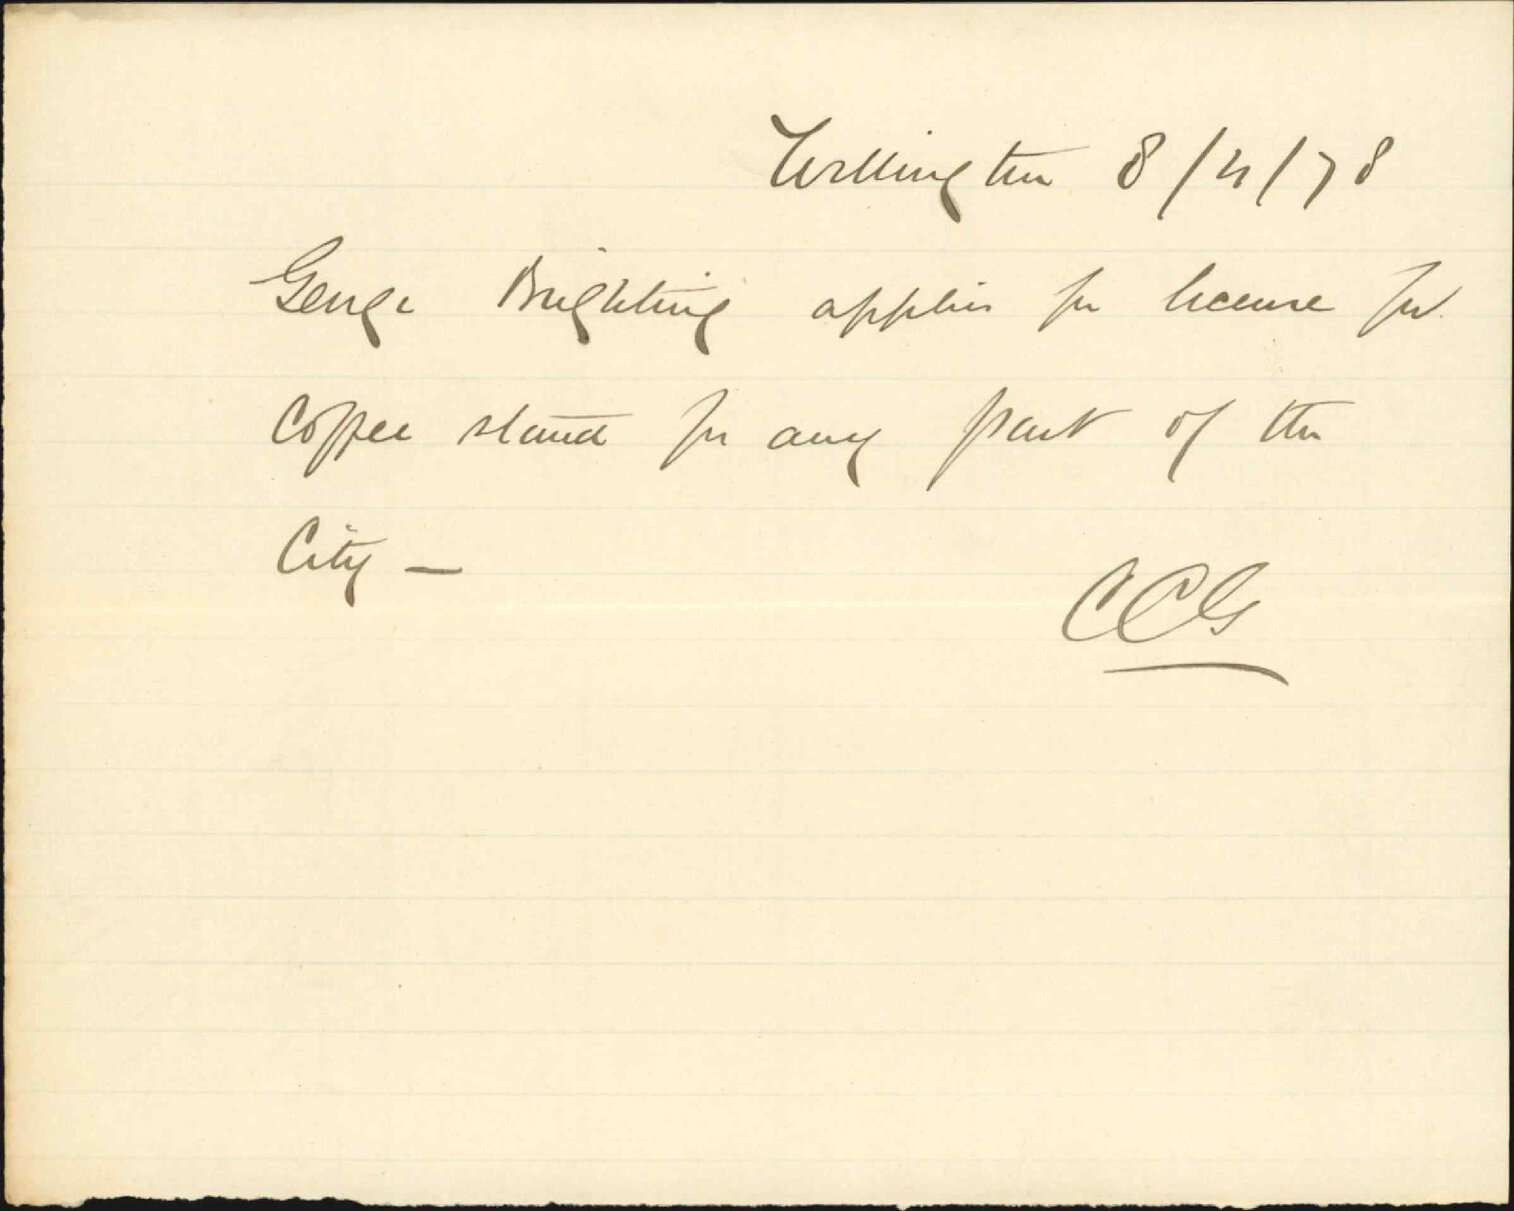 Wellington 8/4/78
George Brighting applies for license for
Coffee stand for any part of the
City —
CCG